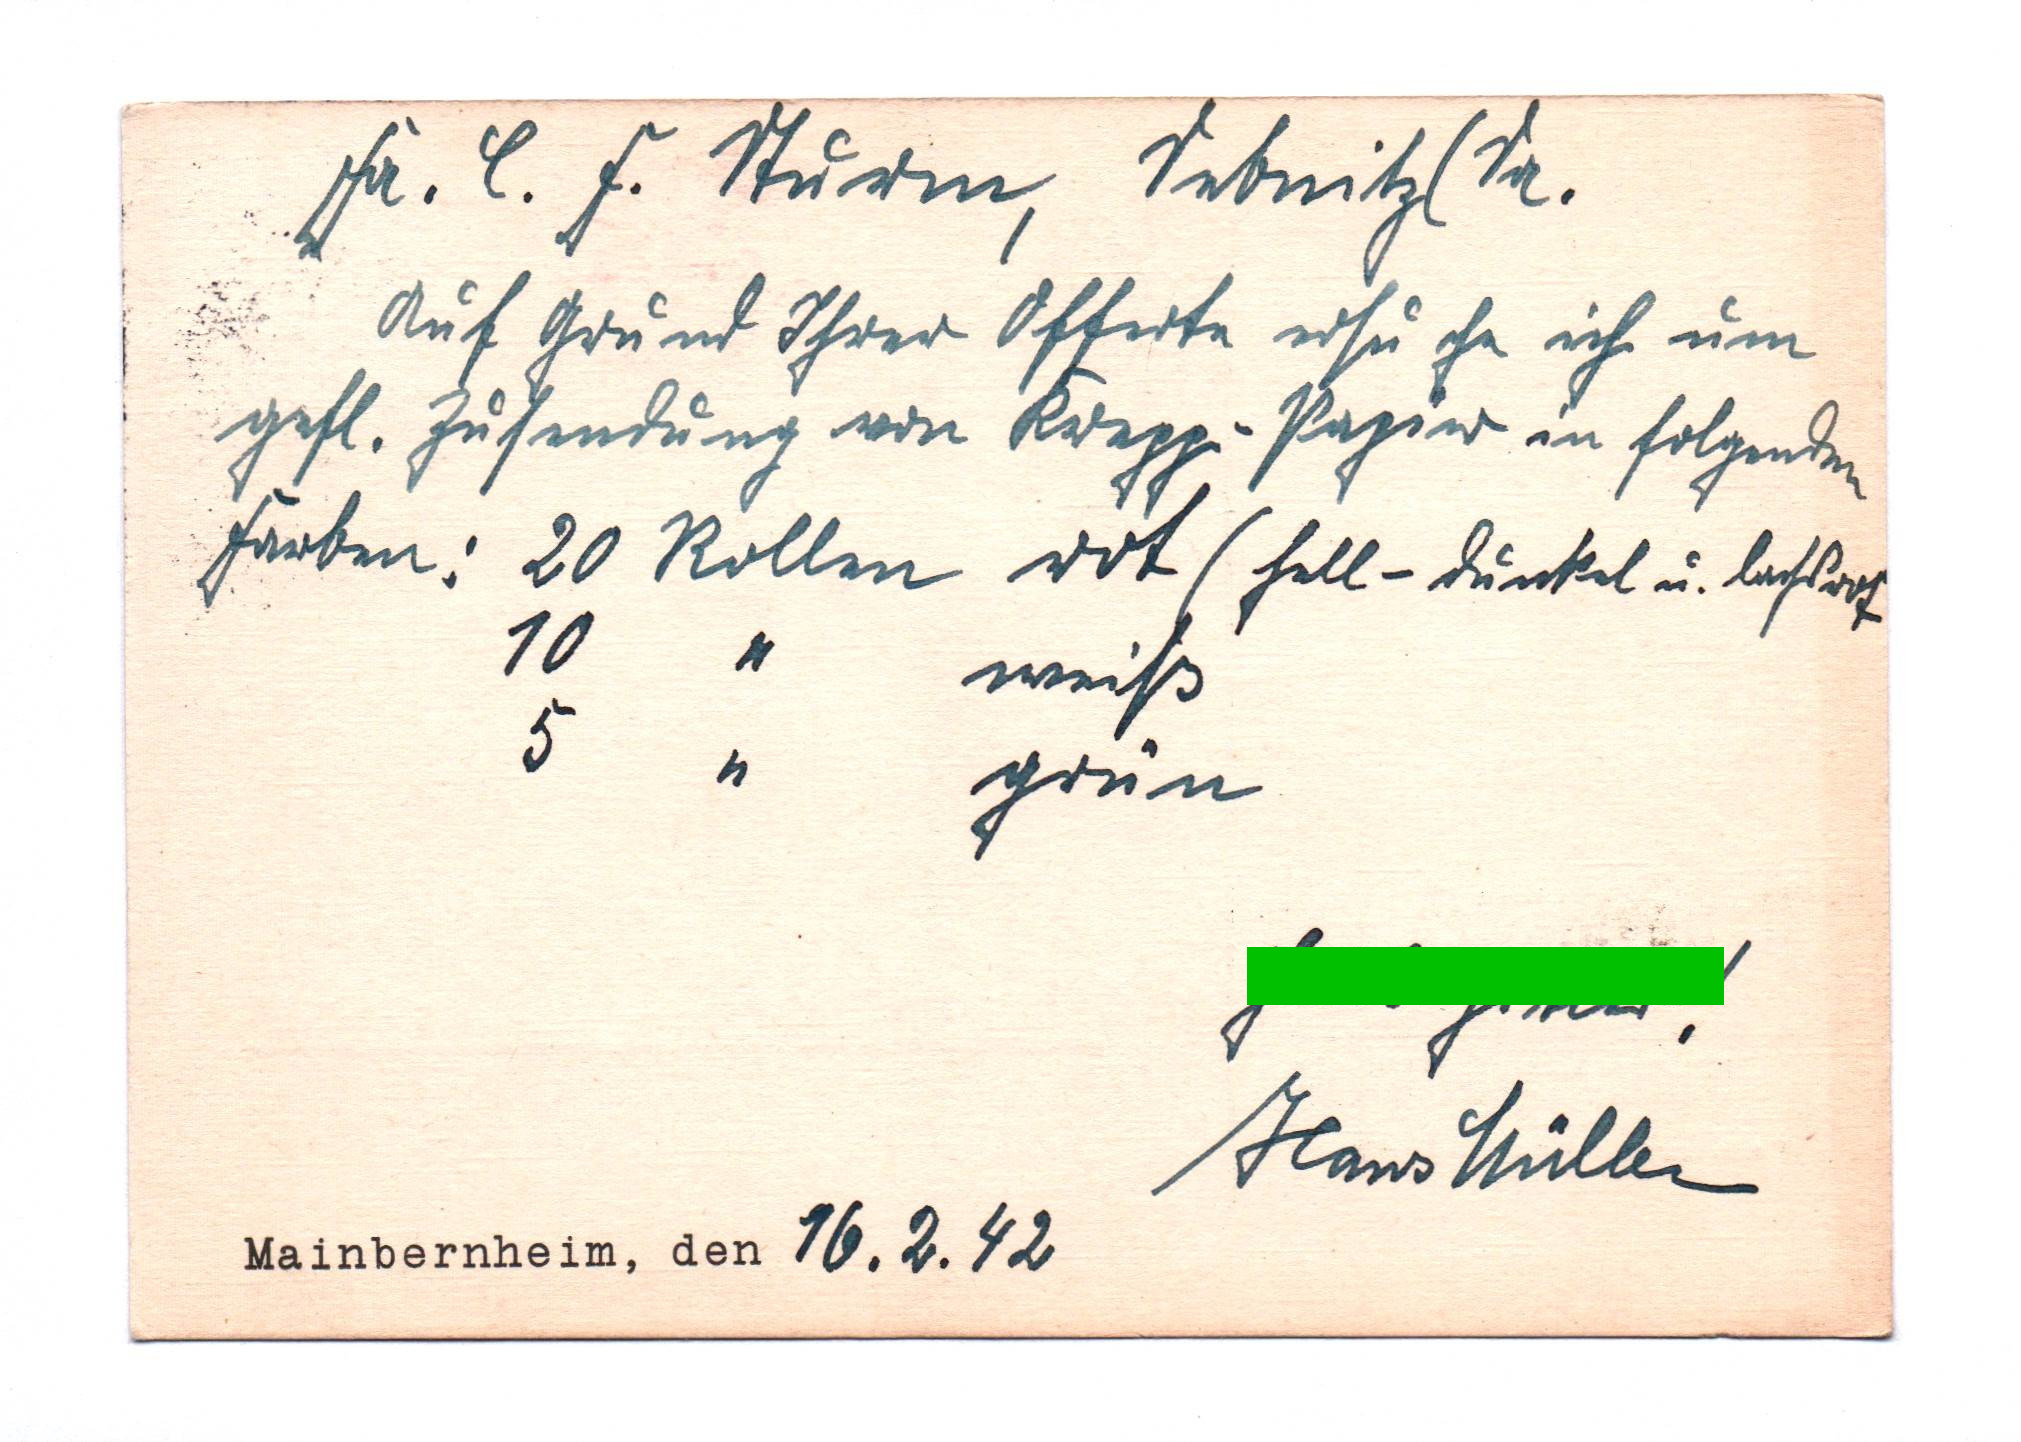 Fa. C. F. Sturm, Sebnitz/Sa.
Auf Grund Ihrer Offerte ersuche ich um
gefl. Zusendung von Krepp-Papier in folgenden
Farben: 20 Rollen rot (hell- dunkel u. lachsrot
10 " weiß
5 " grün
Hans Müller
Mainbernheim, den 16.2.42